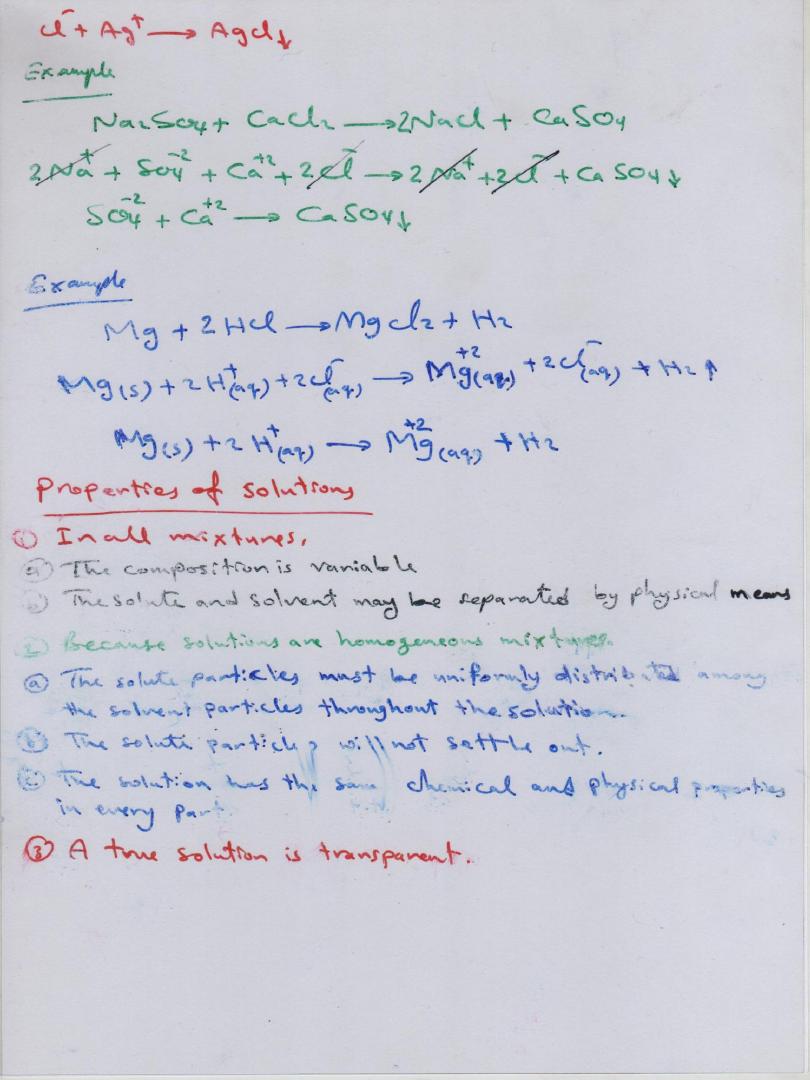 Cl⁻ + Ag⁺ → AgCl↓
Example
Na₂SO₄ + CaCl₂ → 2NaCl + CaSO₄
2Na⁺ + SO₄⁻² + Ca⁺² + 2Cl⁻ → 2Na⁺ + 2Cl⁻ + CaSO₄↓
SO₄⁻² + Ca⁺² → CaSO₄↓
Example
Mg + 2HCl → MgCl₂ + H₂
Mg(s) + 2H⁺(aq) + 2Cl⁻(aq) → Mg⁺²(aq) + 2Cl⁻(aq) + H₂↑
Mg(s) + 2H⁺(aq) → Mg⁺²(aq) + H₂
Properties of solutions
① In all mixtures,
ⓐ The composition is variable
ⓑ The solute and solvent may be separated by physical means
② Because solutions are homogeneous mixtures.
ⓐ The solute particles must be uniformly distributed among
the solvent particles throughout the solution.
ⓑ The solute particles will not settle out.
ⓒ The solution has the same chemical and physical properties
in every part.
③ A true solution is transparent.